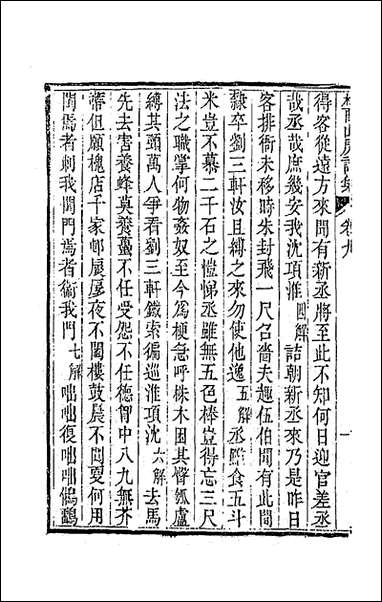 得客從遠方來聞有新丞將至此不知何日迎官差丞
哉丞哉庶幾安我沈項淮四解詰朝新丞來乃是昨日
客排衙未移時朱封飛一尺召嗇夫趣伍伯聞有此間
隸卒劉三軒汝且縛之來勿使他逸五解丞雖食五斗
米豈不慕二千石之愷悌丞雖無五色棒豈得忘三尺
法之職掌何物姦奴至今為梗急呼株木困其臀瓠盧
縛其頭萬人爭看劉三軒鐵索徧巡淮項沈六解去馬
先去害養蜂莫養蠆不任受怨不任德胷中八九無芥
蔕但願槐店千家邨屐屧夜不闔樓鼓晨不問更何用
閽焉者刺我閨門焉者衞我門七解咄咄復咄咄鵂鶹
卷九
一